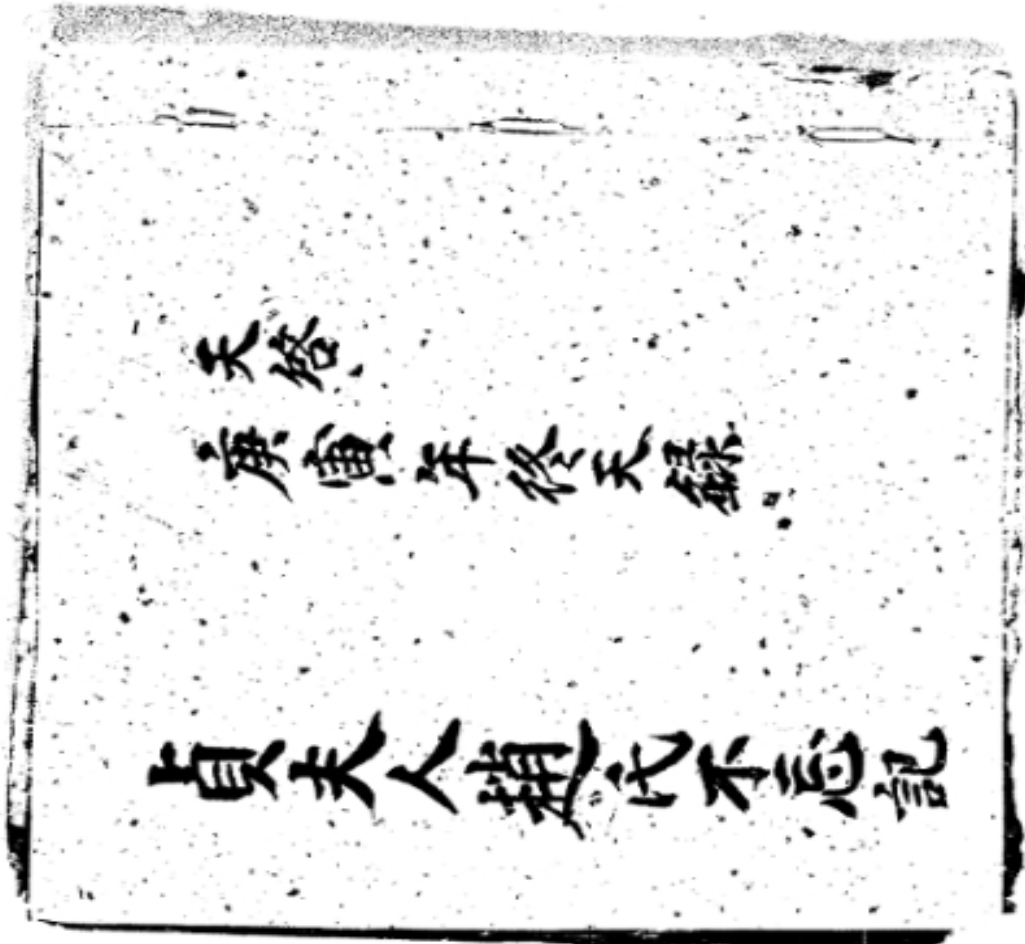 天
庚寅年終天錄
貞夫人趙氏不忘記